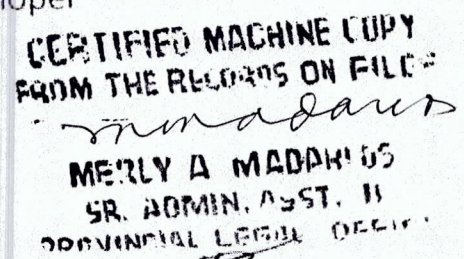 loper
CERTIFIED MACHINE COPY
FROM THE RECORDS ON FILE
MERLY A MADARIOS
SR. ADMIN. ASST. II
PROVINCIAL LEGAL OFFICE